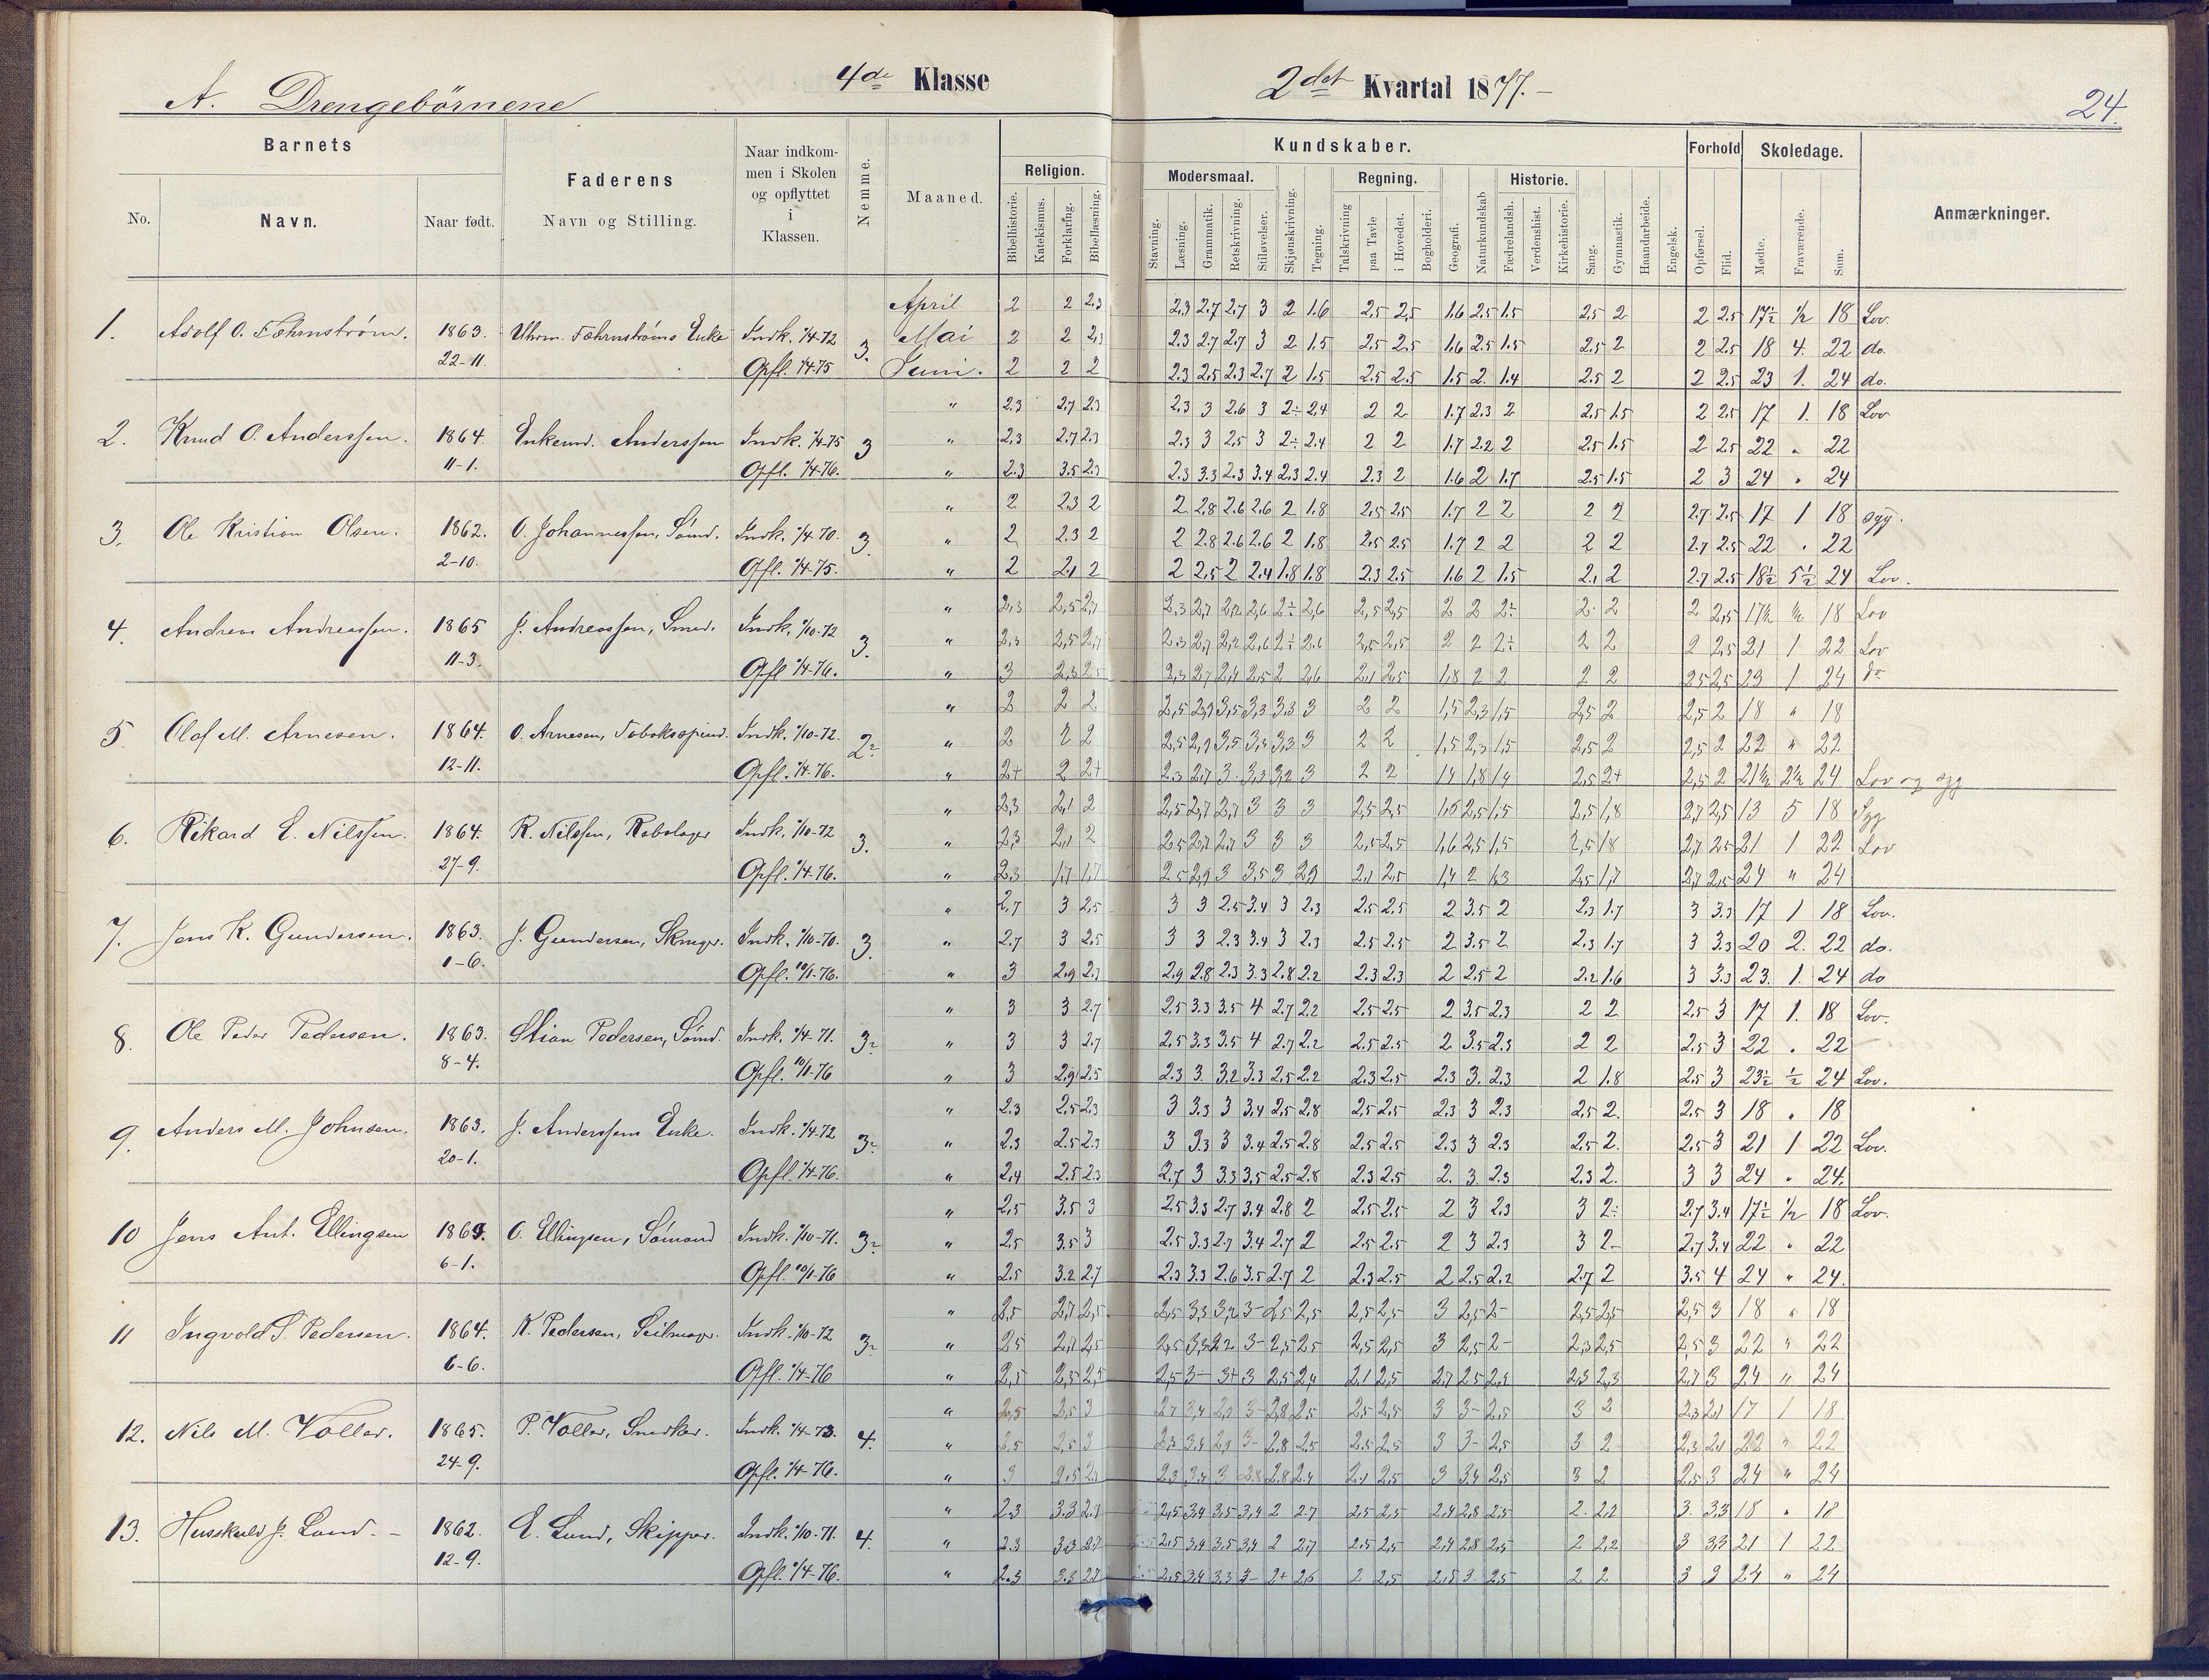 4de Klasse
2det Kvartal 1877.-
24.
A. Drengebörnene
Barnets
Faderens
Naar indkom-
men i Skolen
og opflyttet
i
Klassen.
Nemme.
Maaned.
Religion.
Kundskaber.
Forhold
Skoledage.
Anmærkninger.
Modersmaal.
Regning.
Historie.
No.
Navn.
Naar født.
Navn og Stilling.
Bibelhistorie.
Katekismus.
Forklaring.
Bibellæsning.
Stavning.
Læsning.
Grammatik.
Retskrivning.
Stiløvelser.
Skjønskrivning.
Tegning.
Talskrivning
paa Tavle
i Hovedet.
Bogholderi.
Geografi.
Naturkundskab
Fædrelandsh.
Verdenshist.
Kirkehistorie.
Sang.
Gymnastik.
Haandarbeide.
Engelsk.
Opførsel.
Flid.
Mødte.
Fraværende.
Sum.
April 2 2 2.3 2.3 2.7 2.7 3 2 1.6 2.5 2.5 1.6 2.5 1.5 2.5 2 2 2.5 17½ ½ 18 Lov.
1. Adolf O. 1863. Enke Indk. 1/4-72 3. Mai 2 2 2.3 2.3 2.7 2.7 3 2 1.5 2.5 2.5 1.6 2.5 1.5 2.5 2 2 2.5 18 4. 22 do.
22-11. Opfl. 1/4-75 Juni. 2 2 2 2.3 2.5 2.3 2.7 2 1.5 2.5 2.5 1.5 2. 1.4 2.5 2 2 2.5 23 1. 24 do.
" 2.3 2.7 2.3 2.3 3 2.6 3 2÷ 2.4 2 2 1.7 2.3 2 2.5 1.5 2 2.5 17 1. 18 Lov
2. Knud O. Anderssen. 1864. Enkemd. Anderssen Indk. 1/4-75 3 " 2.3 2.7 2.3 2.3 3 2.5 3 2÷ 2.4 2 2 1.7 2.2 2 2.5 1.5 2 2.5 22 " 22
11-1. Opfl. 1/4-76. " 2.3 3.5 2.3 2.3 3.3 2.3 3.4 2.3 2.4 2.3 2 1.6 2 1.7 2.5 1.5 2 3 24 " 24
" 2 2.3 2 2 2.8 2.6 2.6 2 1.8 2.5 2.5 1.7 2 2 2 2 2.7 2.5 17 1 18 syg.
3. Ole Kristian Olsen. 1862. O. Johannessen, Sömd. Indk. 1/4-70. 3. " 2 2.3 2 2 2.8 2.6 2.6 2 1.8 2.5 2.5 1.7 2 2 2 2 2.7 2.5 22 . 22
2-10. Opfl. 1/4-75. " 2 2.1 2 2 2.5 2 2.4 1.8 1.8 2.3 2.5 1.6 2 1.5 2.1 2 2.7 2.5 18½ 5½ 24 Lov.
" 2,3 2,5 2,7 2,3 2,7 2,2 2,6 2÷ 2,6 2,5 2,5 2 2 2÷ 2 2 2 2,5 17½ ½ 18 Lov
4. Andreas Andreassen. 1865 J. Andreassen, Smed. Indk. 1/10-72 3. " 2,3 2,5 2,7 2,3 2,7 2,2 2,6 2÷ 2.6 2,5 2,5 2 2 2÷ 2 2 2 2,5 21 1 22 Lov
11-3. Opfl 1/4-76. " 3 2,3 2,5 2,3 2,7 2,4 2,5 2 2,6 2,1 2,5 1,8 2 2 2 2 2,5 2,5 23 1 24 do
" 2 2 2 2,5 2,9 3,5 3,3 3,3 3 2 2 1,5 2,3 1,5 2,5 2 2,5 2 18 " 18
5. Olaf M. Arnesen. 1864. O. Arnesen, Tobakspind. Indk. 1/10-72. 2÷ " 2 2 2 2,5 2,9 3,5 3,3 3,3 3 2 2 1,5 2,3 1,5 2,5 2 2,5 2 22 " 22
12-11. Opfl. 1/4-76. " 2+ 2 2+ 2,3 2,7 3. 3,3 3,2 3 2 2 1,4 1,8 1,4 2,5 2+ 2,5 2 21½ 2½ 24 Lov og syg
" 2,3 2,1 2 2,5 2,7 2,7 3 3 3 2,5 2,5 1,6 2,5 1,5 2,5 1,8 2,7 2,5 13 5 18 Syg
6. Rikard E. Nilssen. 1864. R. Nilssen, Indk. 1/10-72 3. " 2,3 2,1 2 2,5 2,7 2,7 3 3 3 2,5 2,5 1,6 2,5 1,5 2,5 1,8 2,7 2,5 21 1 22 Lov
27-9. Opfl. 1/4-76. " 2,3 1,7 1,7 2,5 2,9 3 3,5 3 2,9 2,1 2,5 1,4 2 1,3 2,5 1,7 2,7 2,5 24 " 24
" 2.7 3 2.5 3 3 2.5 3.4 3 2.3 2.5 2.5 2 3.5 2 2.3 1.7 3 3.3 17 1 18 Lov.
7. Jens K. Gundersen. 1863. J. Gundersen, Indk. 1/10-70. 3. " 2.7 3 2.5 3 3 2.3 3.4 3 2.3 2.5 2.5 2 3.5 2 2.3 1.7 3 3.3 20 2. 22 do.
1-6. Opfl. 10/1-76. " 3 2.9 2.3 2.9 2.8 2.3 3.3 2.8 2.2 2.3 2.3 2 2.5 2 2.2 1.6 3 3.3 23. 1. 24 do
" 3 3 2.7 2.5 3.3 3.5 4 2.7 2.2 2.5 2.5 2 3.5 2.3 2 2 2.5 3 17 1. 18 Lov.
8. Ole Peder Pedersen. 1863. Stian Pedersen, Sömd. Indk. 1/4-71. 3÷ " 3 3 2.7 2.5 3.3 3.5 4 2.7 2.2 2.5 2.5 2 3.5 2.3 2 2 2.5 3 22 . 22
8-4. Opfl. 10/1-76 " 3 2.9 2.5 2.3 3 3.2 3.3 2.5 2.2 2.3 2.5 2.3 3. 2.3 2 1.8 2.5 3 23½ ½ 24 Lov.
" 2.3 2.5 2.3 3 3.3 3 3.4 2.5 2.8 2.5 2.5 2.3 3 2.3 2.5 2. 2.5 3 18 . 18
9. Anders M. Johnsen. 1863. J. Anderssens Enke. Indk. 1/4-72 3÷ " 2.3 2.5 2.3 3 3.3 3 3.4 2.5 2.8 2.5 2.5 2.3 3 2.3 2.5 2. 2.5 3 21 1 22 Lov.
20-1. Opfl. 1/4-76. " 2.4 2.5 2.3 2.7 3 3.3 3.5 2.5 2.8 2.3 2.5 2. 3. 2.3 2.3 2. 3 3 24 . 24.
" 2.5 3.5 3 2.5 3.3 2.7 3.4 2.8 2 2.5 2.5 2 3 2.3 3 2÷ 2.7 3.4 17½ ½ 18 Lov.
10 Jens Ant. Ellingsen O. Ellingsen, Sömand Indk. 1/10-71. 3÷ " 2.5 3.5 3 2.5 3.3 2.7 3.4 2.7 2 2.5 2.5 2 3 2.3 3 2- 2.7 3.4 22 . 22
6-1. Opfl. 10/1-76 " 2.5 3.2 2.7 2.3 3.3 2.6 3.5 2.7 2 2.3 2.5 2 2.5 2.2 2.7 2 3.5 4 24 " 24.
" 2,5 2,7 2,5 2,5 3,3 3,2 3- 2,5 2,5 2,5 2,5 3 2,5 2- 2,5 2,5 2,5 3 18 " 18
11 Ingvold S. Pedersen. 1864. K. Pedersen, Seilmager. Indk. 1/10-72 3÷ " 2,5 2,7 2,5 2,5 3- 2,5 2,5 2,5 2,5 3 2,5 2- 2,3 2,5 2,5 3 22 " 22
6-6. Opfl. 1/4-76 " 2,5 2,5 2,5 2,5 3- 3+ 3 2,5 2,4 2.1 2,5 2,7 2,5 2,4 2,3 2,3 2,7 3 24 " 24
" 2,5 2,5 3 2,7 3,4 2,9 3- 2,8 2,5 2,5 2,5 3 3- 2,5 3 2 2,3 2,1 17 1 18
12. Nils M. Voller. 1865. P. Voller, Snedker. Indk. 1/4-73. 4. " 2,5 2,5 3 2,3 3,4 2,9 3- 2,8 2,5 2.5 2,5 3 3- 2,5 3 2 2,3 2,1 22 " 22
24-9. Opfl. 1/4-76. " 3 2,5 2,3 3,4 3 2,8 2,4 2,1 2,5 3 3.4 2,5 3 2 2,5 3 24 " 24
" 2.3 3.3 2.7 2,5 3,4 3,5 3,4 2 2.7 2,5 2,5 2,4 2,8 2,5 2. 2,2 3. 3,3 18 . 18
13. J. Lund. - 1862. E. Lund, Skipper. Indk. 1/10-71. 4. " 2.3 3.3 2.7 2,5 3,4 3,5 3,4 2 2,7 2,5 2,5 2,4 2,8 2,5 2 2,2 3 3,3 21 1 22
12-9. Opfl. 1/4-76. " 2.3 3.3 2.7 2,5 3,4 3,3 3- 2+ 2,6 2 2,5 2,5 3 2,5 2 2 3 3 24 " 24